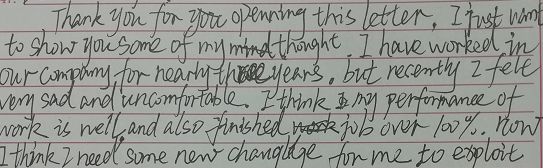 Thank you for you openning this letter. I just want
to show you some of my mind thought I have worked in
our company for nearly three years, but recently I felt
very sad and uncomfortable. I think my performance of
work is well, and also finished job over 100%. Now
I think I need some new changlage for me to exploit